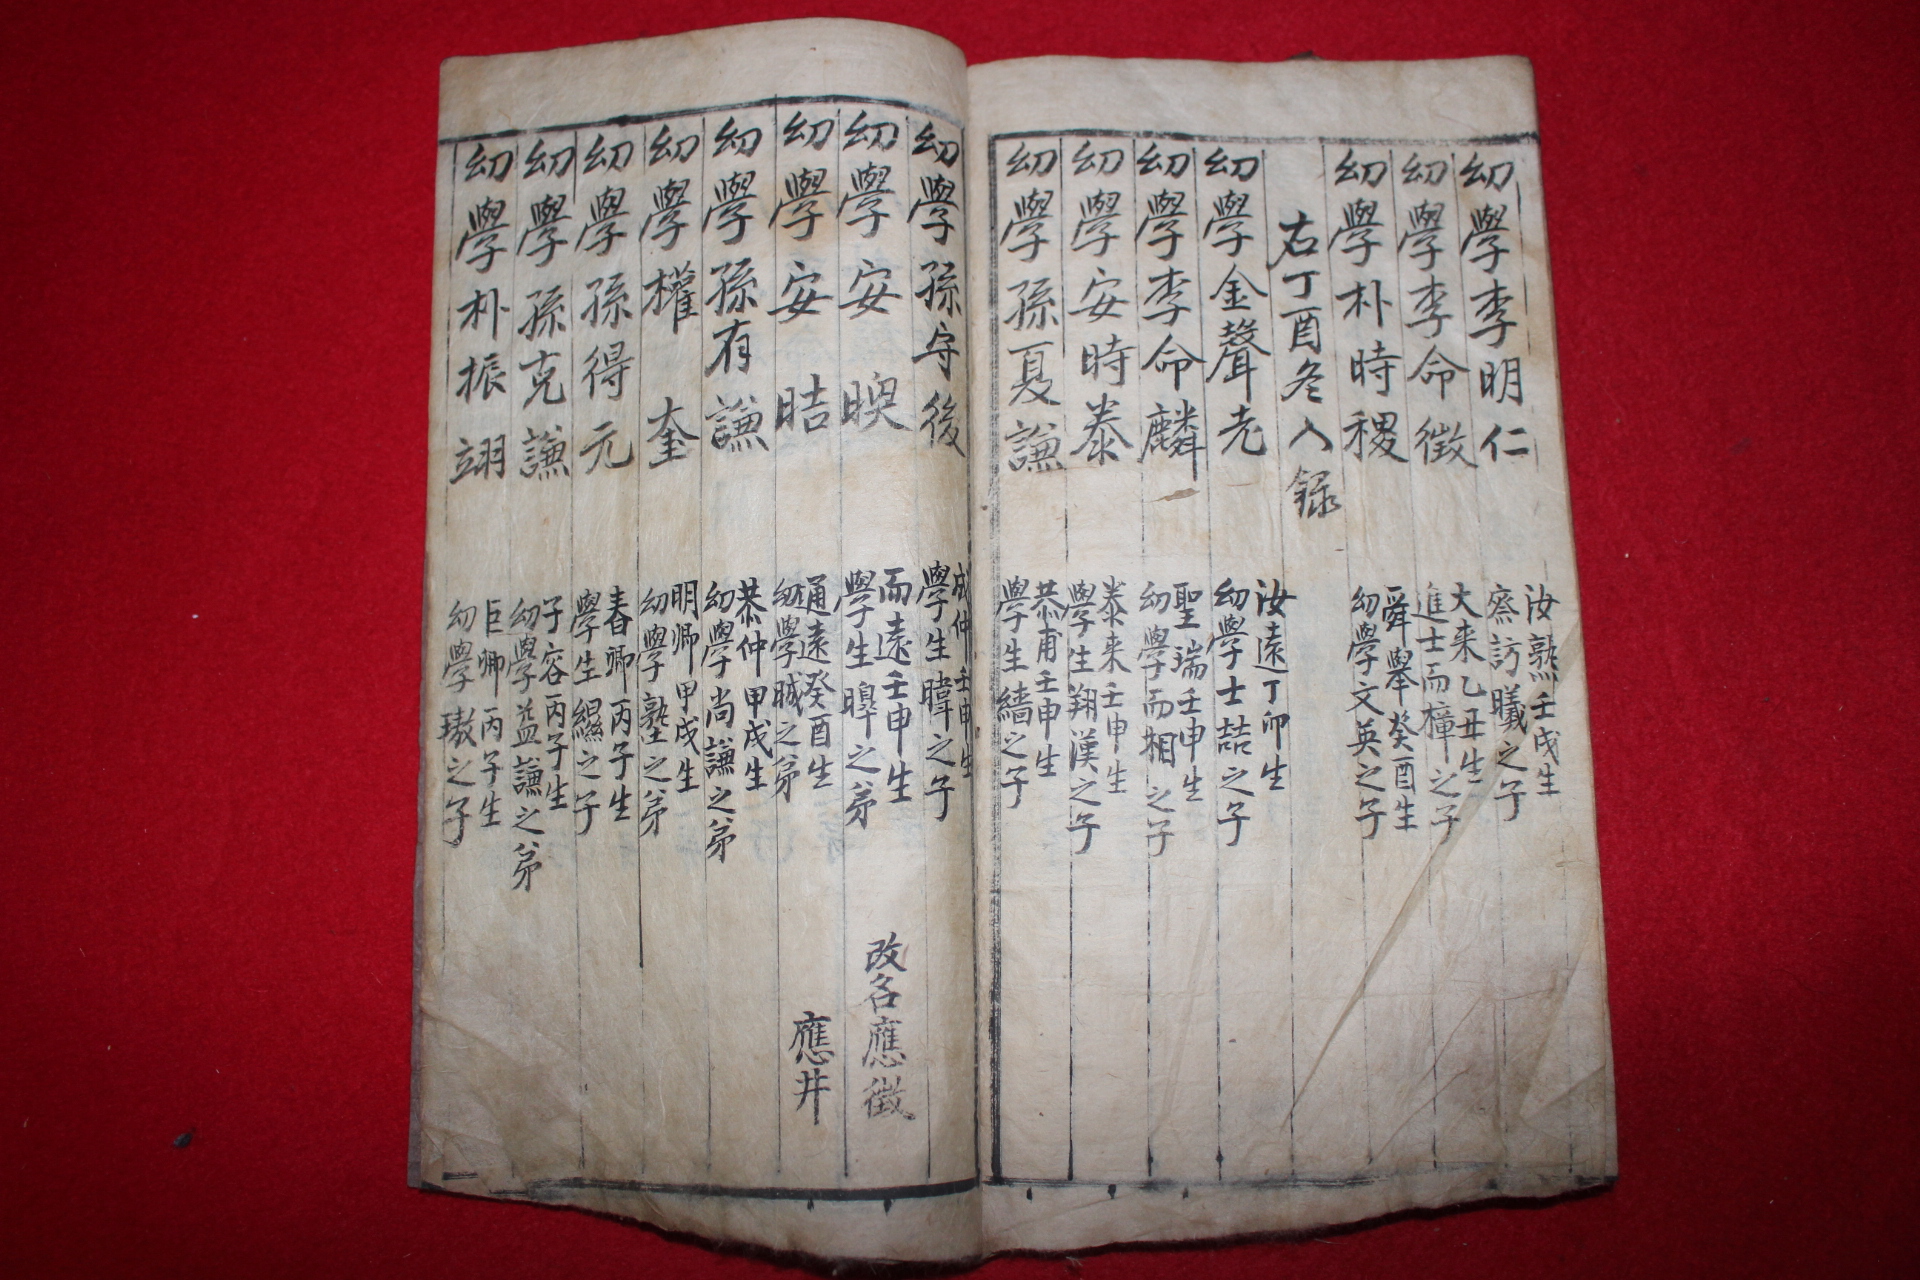 幼學李明仁
汝熟壬戌生
察訪曦之子
幼學李命徵
大来乙丑生
進士而樟之子
幼學朴時稷
舜擧癸酉生
幼學文英之子
右丁酉冬入錄
幼學金聲老
汝遠丁卯生
幼學士喆之子
幼學李命麟
聖瑞壬申生
幼學而相之子
幼學安時泰
泰来壬申生
學生翔漢之子
幼學孫夏謙
恭甫壬申生
學生繥之子
幼學孫守後
成仲壬申生
學生暐之子
幼學安㬇
而遠壬申生
學生皥之弟
改名應徵
幼學安㫷
通遠癸酉生
幼學晠之弟
應井
幼學孫有謙
恭仲甲戌生
幼學尚謙之弟
幼學權奎
明卿甲戌生
幼學塾之弟
幼學孫得元
春卿丙子生
學生之子
幼學孫克謙
子容丙子生
幼學益謙之弟
幼學朴振翊
巨卿丙子生
幼學璈之子